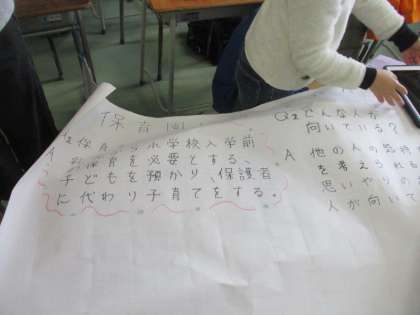 保育
保育 小学校入学前
保育を必要とする、
子どもを預かり、保護者
に代わり子育てをする。
Q2どんな人が
向いている?
A 他の人の気持
を考えられ
思いやりの
人が向いて